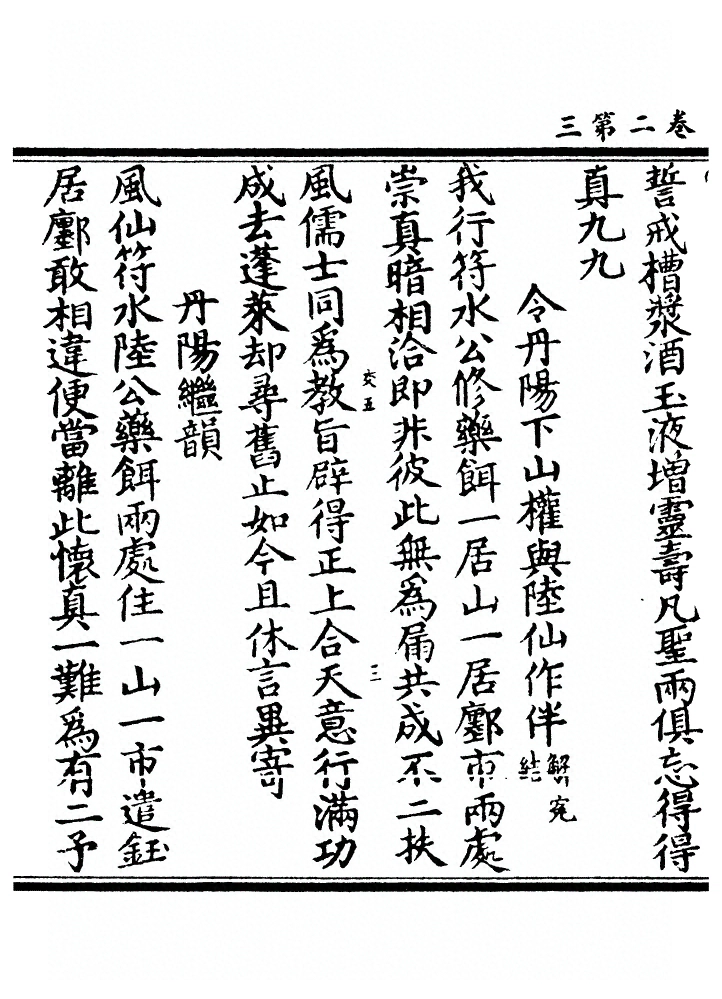 卷二第三
誓戒槽漿酒玉液增靈壽凡聖兩俱忘得得
真九九
令丹陽下山權與陸仙作伴解冤結
我行符水公修藥餌一居山一居鄽市兩處
崇真暗相洽即非彼此無爲屚共成不二扶
交五
三
風儒士同爲教旨辟得正上合天意行滿功
成去蓬萊却尋舊止如今且休言異寄
丹陽繼韻
風仙符水陸公藥餌兩處住一山一市遣鈺
居鄽敢相違便當離此懷真一難爲有二予